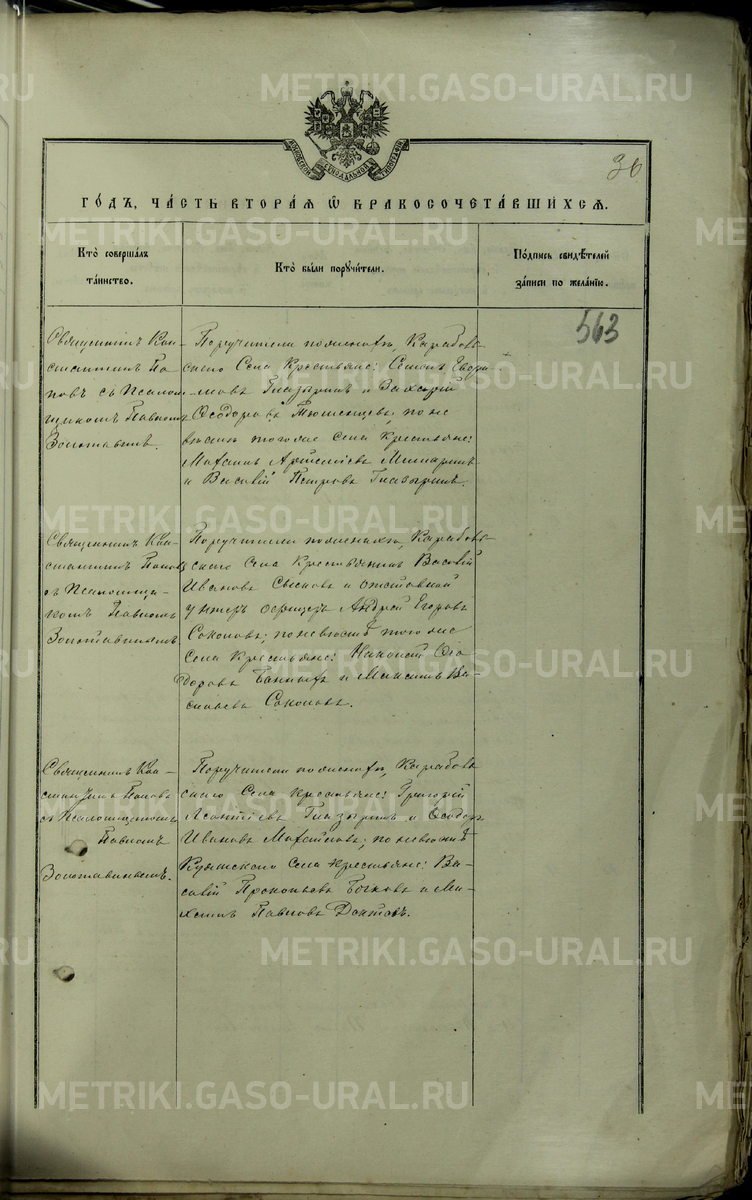 METRIKI.GASO-URAL.RU
36
ГО́ДЪ, ЧА́СТЬ ВТОРА́Я Ѡ҆ БРАКОСОЧЕТА́ВШИХСЯ.
Кто̀ соверша́лъ та́инство.
Кто̀ бы́ли порꙋчи́тели.
По́дпись свидѣ́телей за́писи по жела́нїю.
563
Священникъ Кон-
стантинъ По-
повъ съ Псалом-
щикомъ Павломъ
Золотавинымъ.
Поручители по женихѣ, Карабов-
скаго Села Крестьяне: Семенъ
Глазыринъ и
Ѳеодоровъ Тюменцевъ, по не
вѣстѣ того же села крестьяне:
и Василій Петровъ Глазыринъ.
Священникъ Кон-
стантинъ Поповъ
съ Псаломщи-
комъ Павломъ
Золотавинымъ
Поручители по женихѣ, Карабов-
скаго Села Крестьянинъ Василій
Ивановъ и отставной
унтеръ офицеръ Андрей Егоровъ
Соколовъ; по невѣстѣ того же
Села Крестьяне: Ѳео-
доровъ и Максимъ Ва-
сильевъ Соколовъ.
Священникъ Кон-
стантинъ Поповъ
съ Псаломщикомъ
Павломъ
Золотавинымъ.
Поручители по женихѣ, Карабов-
скаго Села крестьяне: Григорій
Леонтіевъ Глазыринъ и Ѳеодоръ
Ивановъ по невѣстѣ
Села крестьяне: Ва-
силій Прокопьевъ и Ми-
хаилъ Павловъ